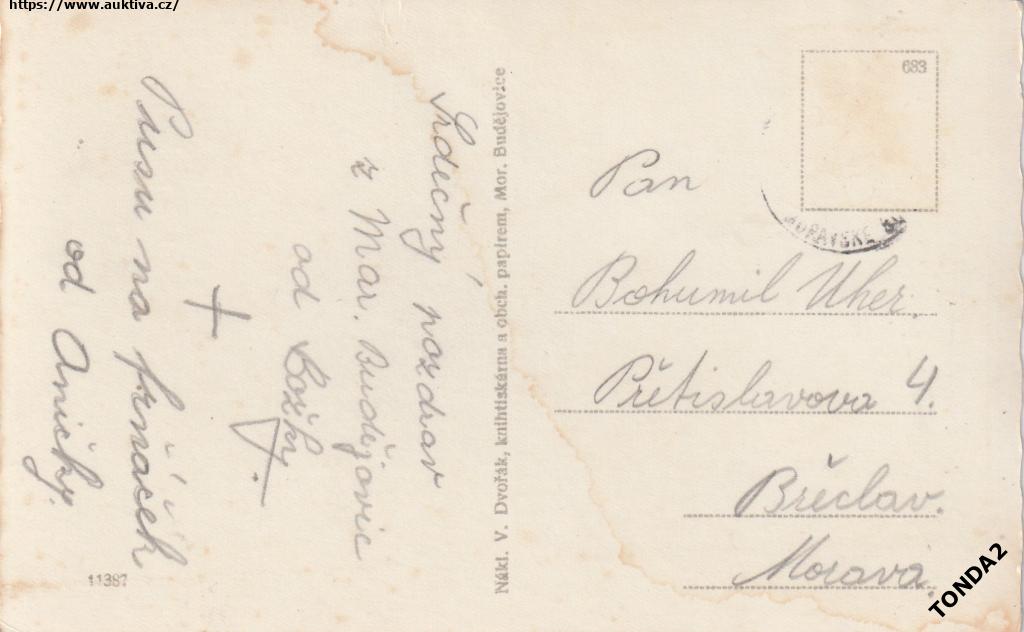 https://www.auktiva.cz/
Srdečný pozdrav
z Mor. Budějovic
od Božky
Pusu na frňáček
od Aničky.
11387
Nákl. V. Dvořák, knihtiskárna a obch. papírem, Mor. Budějovice
683
MORAVSKÉ
Pan
Bohumil Uher.
Přetislavova 4.
Břeclav.
Morava.
TONDA2